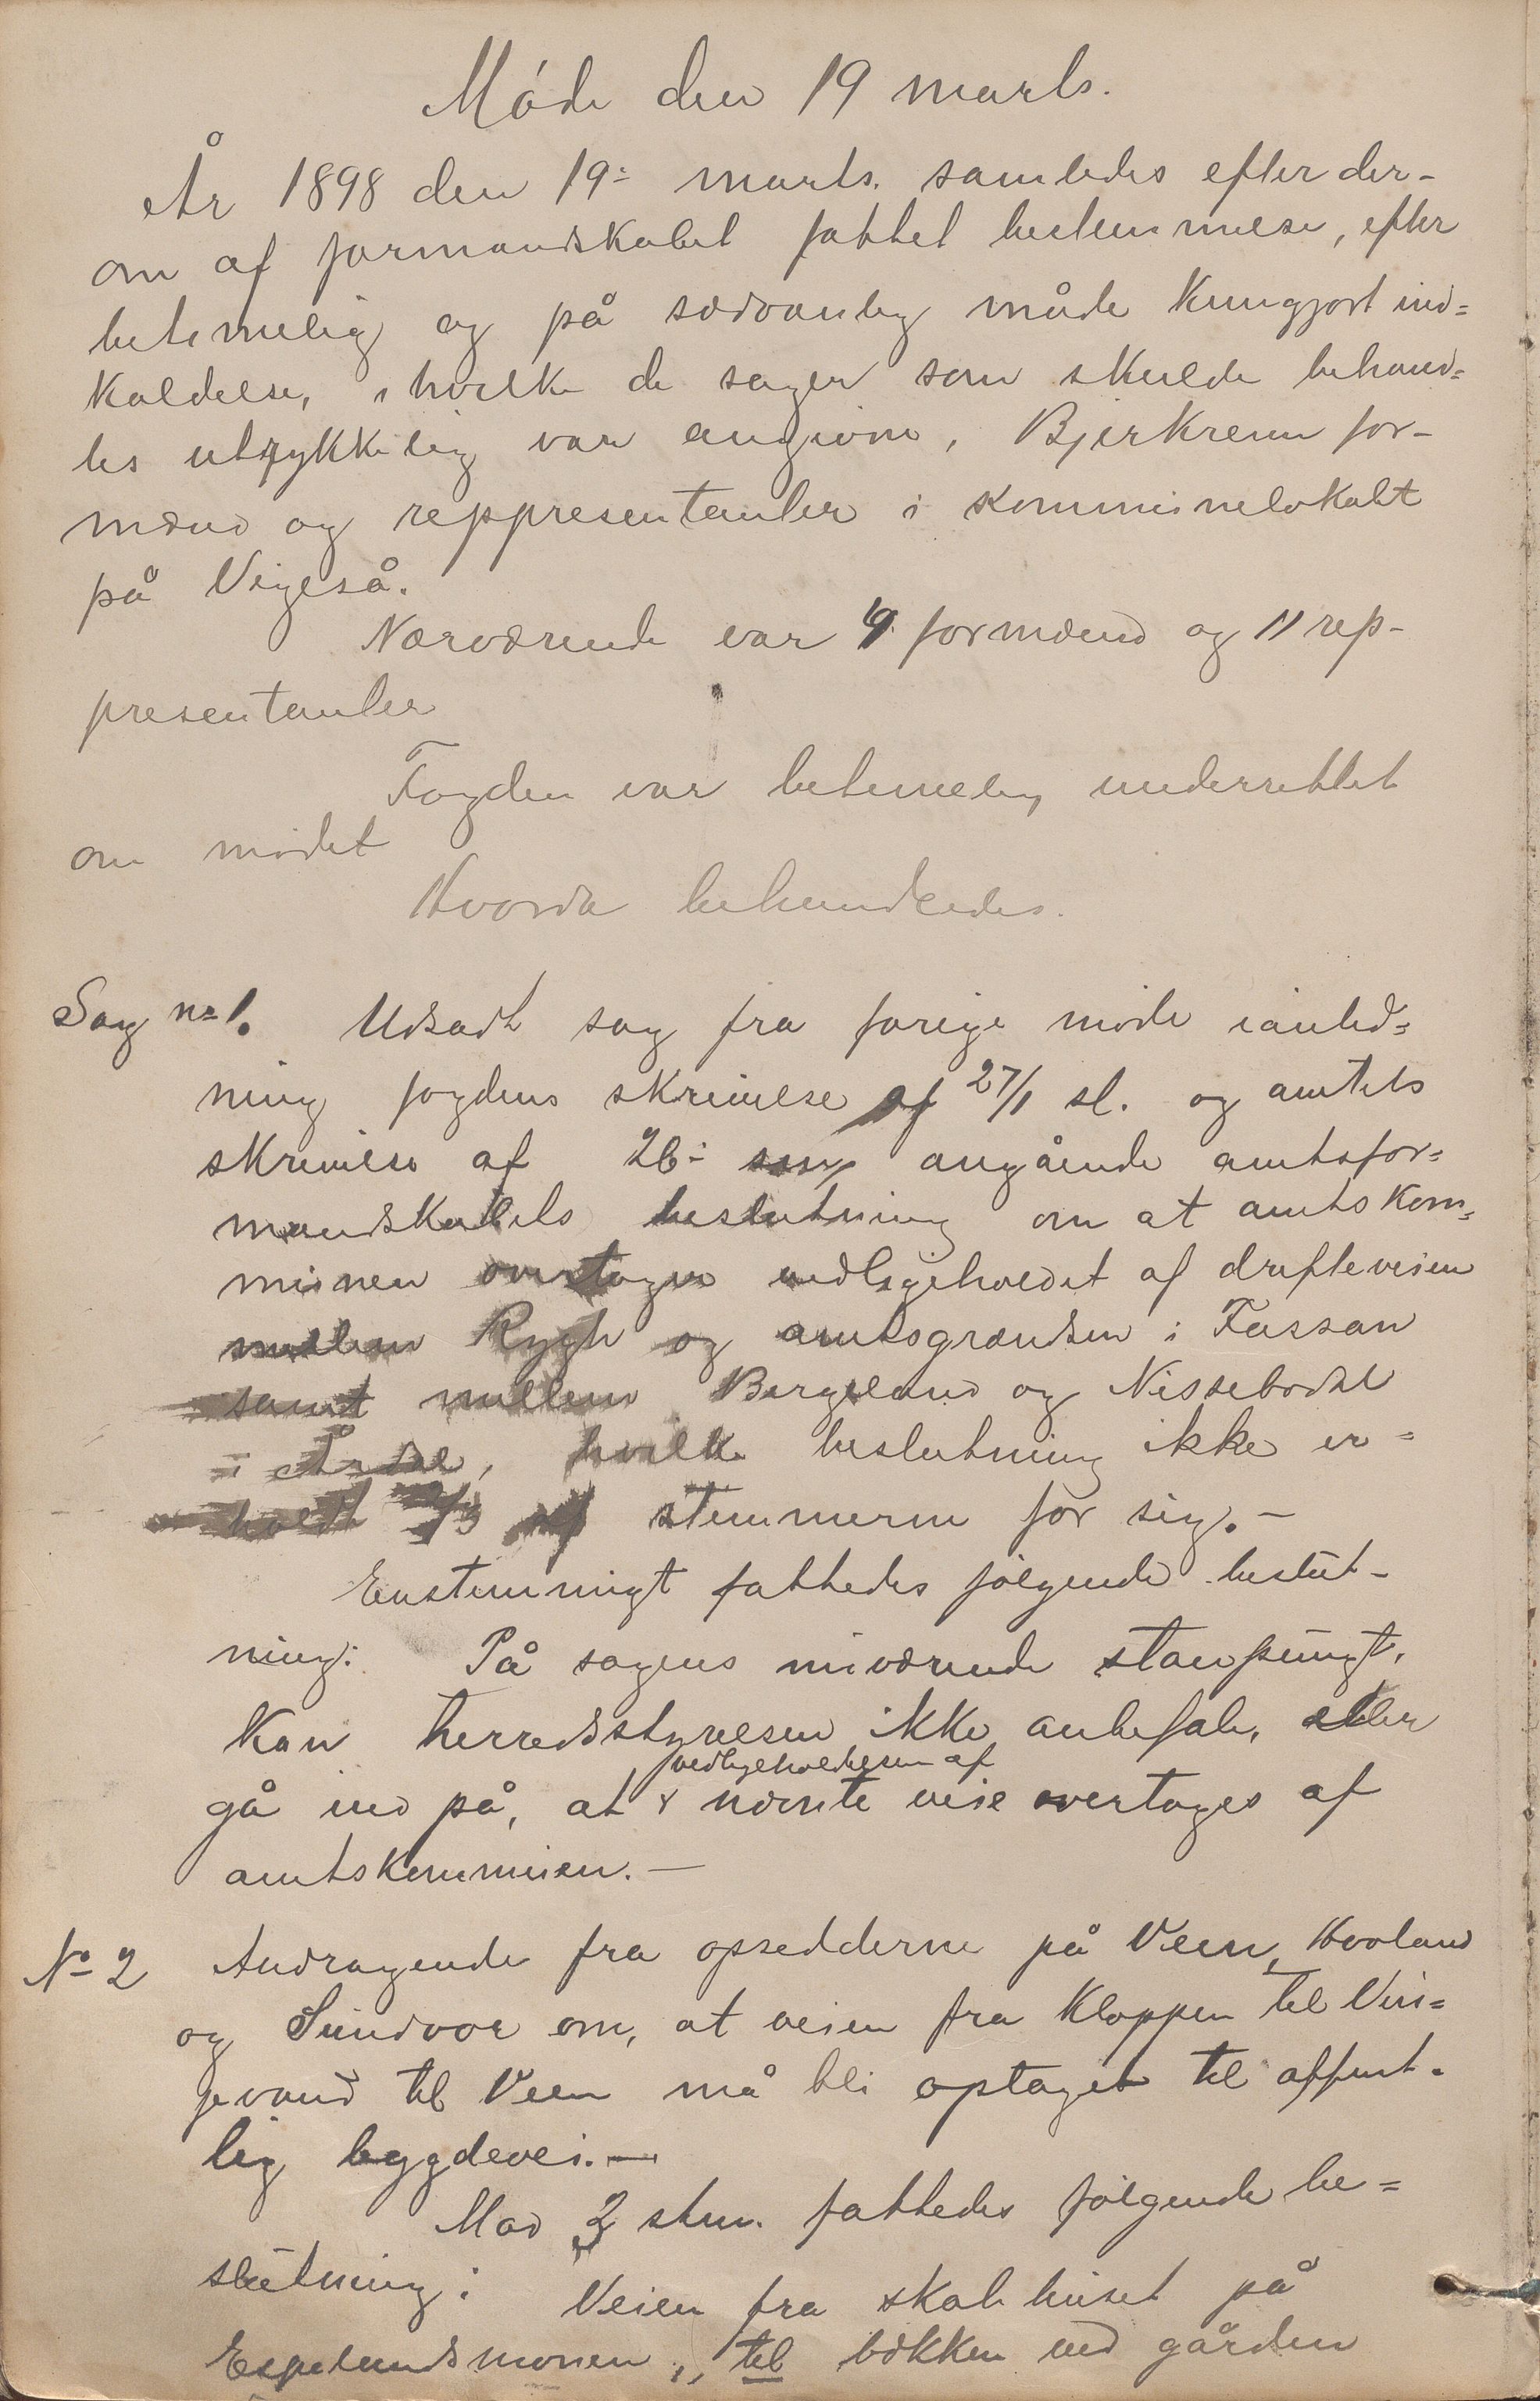 Møde den 19 marts.
År 1898 den 19de marts. samledes efter der-
om af formandskabet fattet bestemmelse, efter
betimelig og på sædvanlig måde kungjort ind=
kaldelse, i hvilke de sager som skulde behand=
les udtrykkelig var angivne, Bjerkreim for-
mænd og reppresentanter i kommunelokalet
på Vigeså.
Nærværende var 4 formænd og 11 rep-
presentanter
Fogden var betimelig underrettet
om mødet
Hvorda behandledes.
Sag no 1. Udsadt sag fra forige møde ianled=
ning fogdens skrivelse af 27/1 sl. og amtets
skrivelse af 26 angående amtsfor=
mandskabets beslutning om at amtskom=
munen overtager vedligeholdet af drifteveien
mellem Rygh og amtsgrændsen i Fassan
samt mellem Bergeland og Nissebodal
i Årdal, hvilke beslutning ikke er=
holdt 2/3 af stemmerne for sig. -
Enstemmigt fattedes følgende beslut-
ning: På sagens nuværende standpungt,
kan herredsstyrelsen ikke anbefale, eller
vedligeholdelsen af
gå ind på, at nævnte veie overtages af
amtskommunen. -
No 2 Andragende fra opsedderne på Veen, Hovland
og Sundvor om, at veien fra Kloppen til Vin=
jevand til Veen må bli optaget til offent-
lig bygdevei. -
Mod 3 stm. fattedes følgende be=
slutning: Veien fra skolehuset på
Espelandsmonen, til bækken ved gården